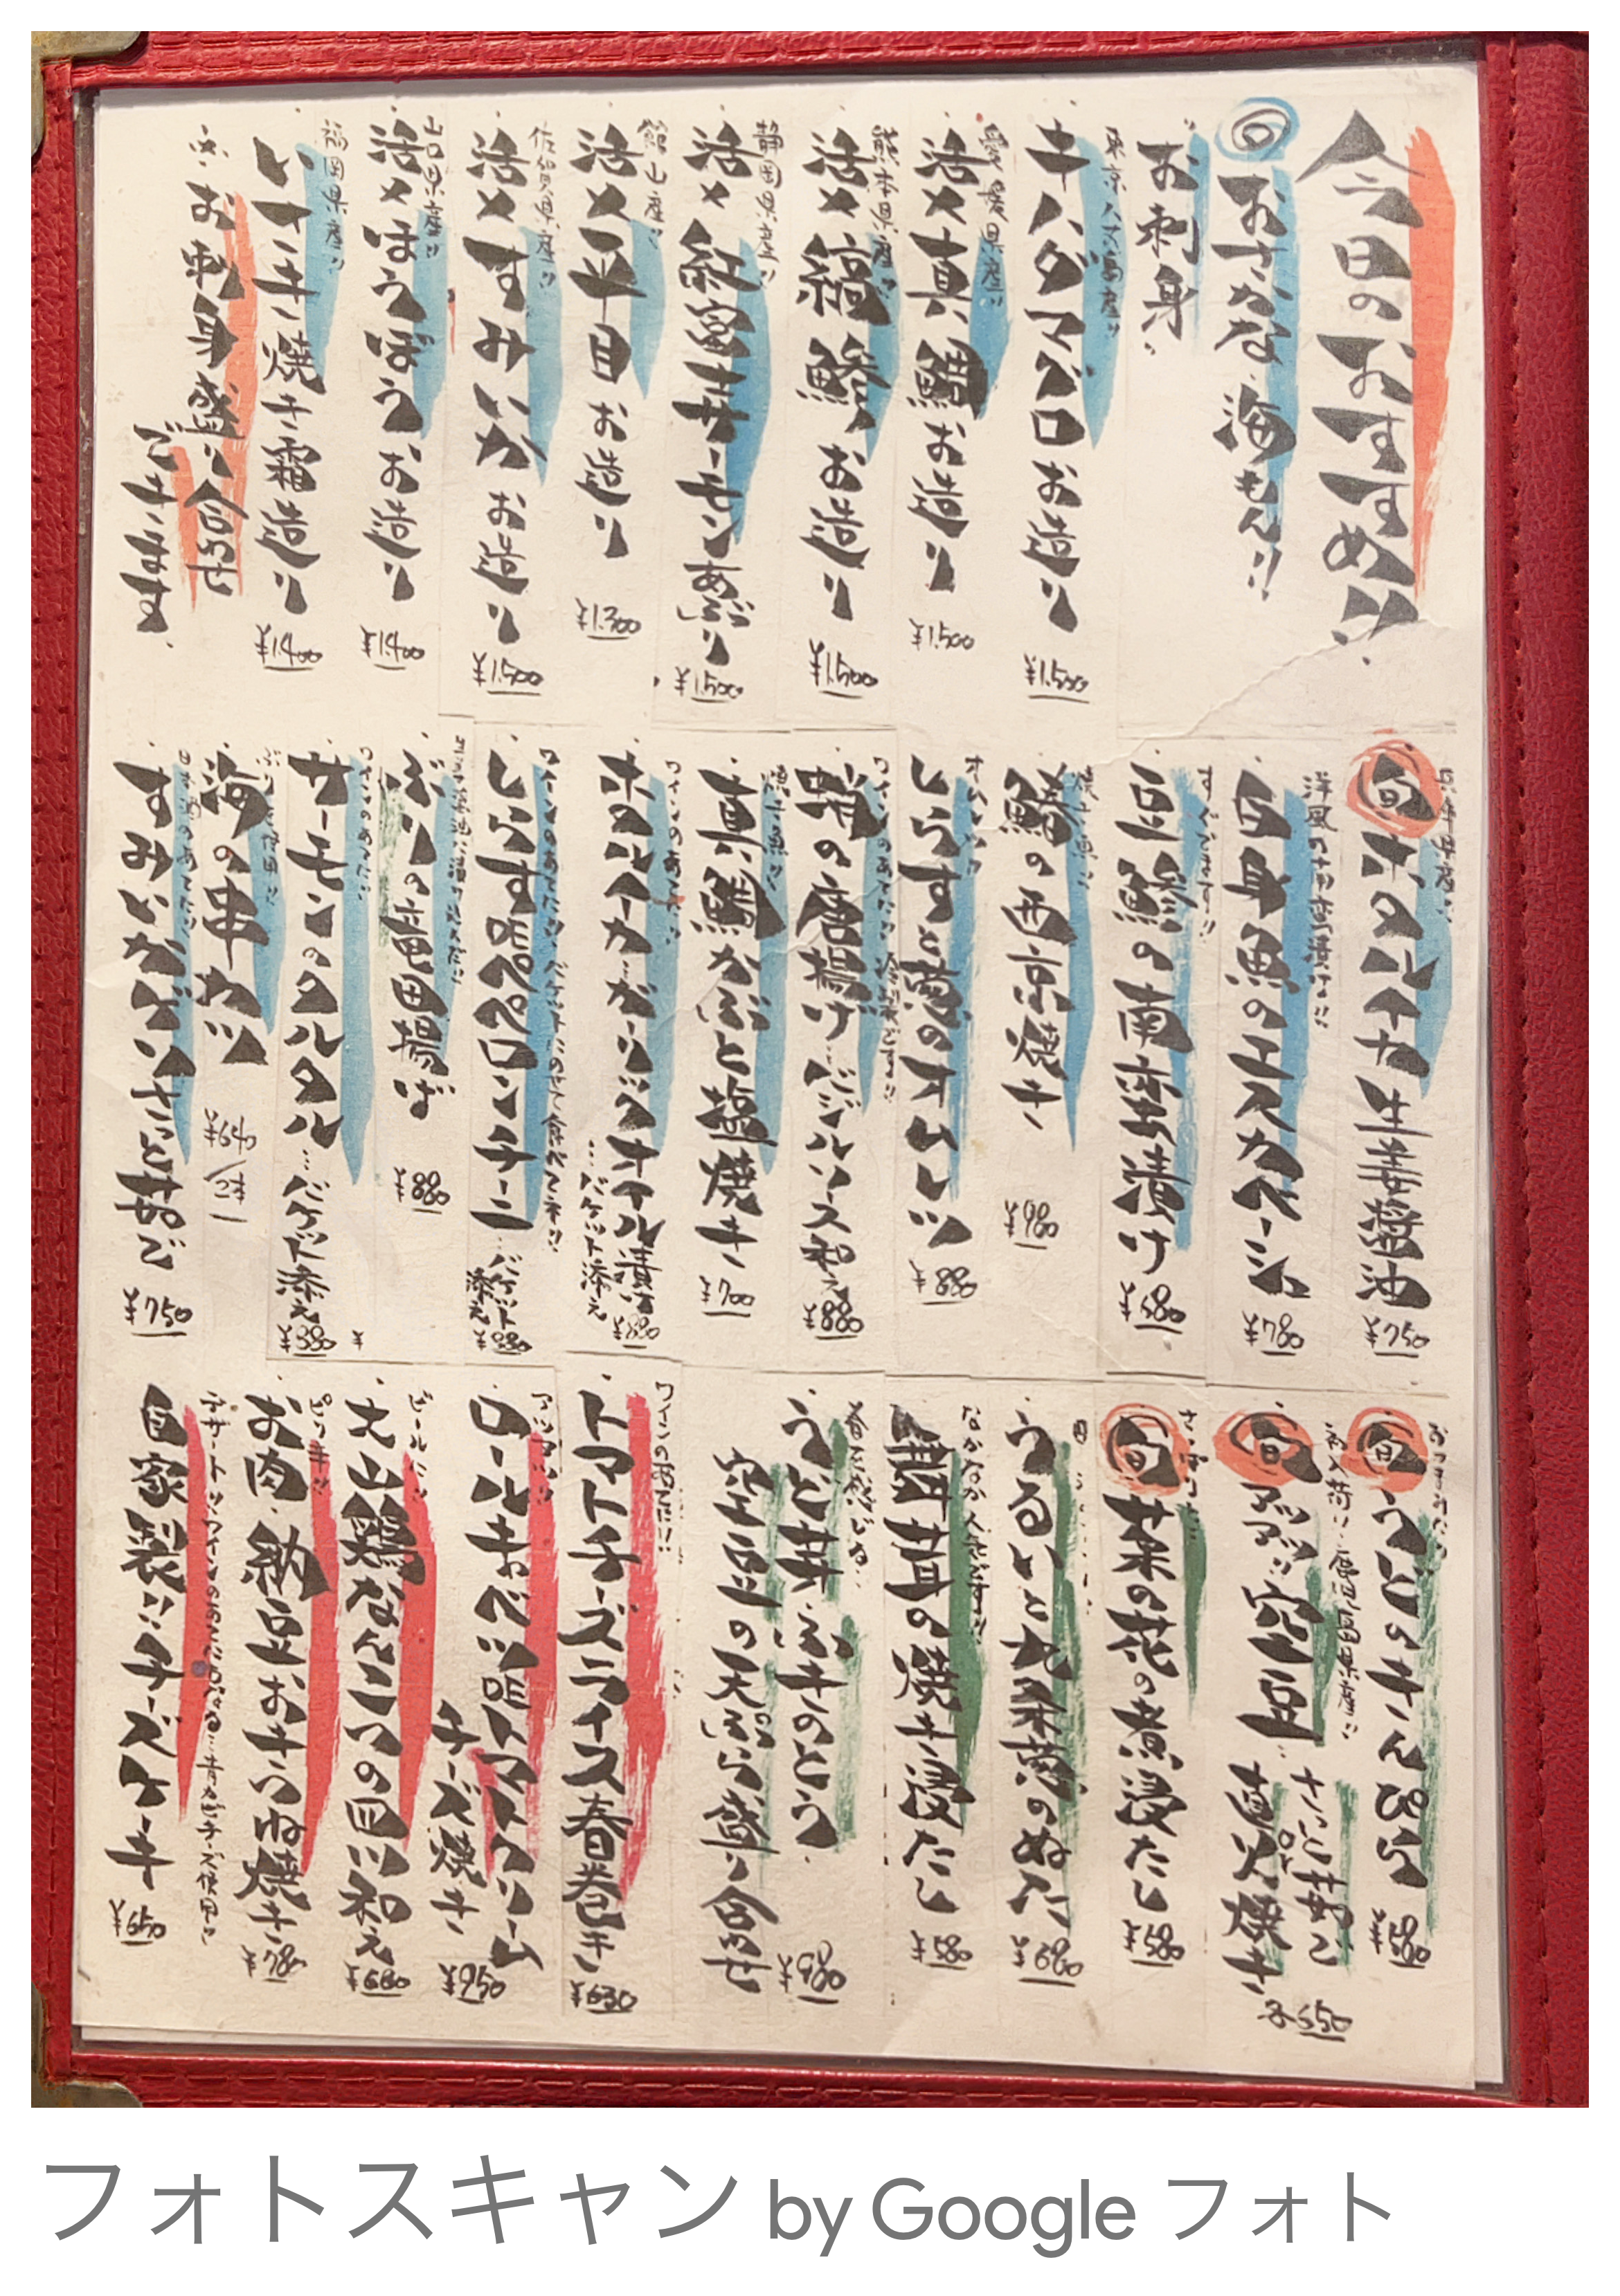 今日のおすすめ!!
おさかな・海もん!!
お刺身
東京八丈島産!!
キハダマグロお造り
¥1.500
愛媛県産!!
活〆真鯛お造り
¥1.500
熊本県産!!
活〆縞鯵お造り
¥1.500
静岡県産!!
活〆紅富士サーモンあぶり
¥1.500
館山産!!
活〆平目お造り
¥1.300
佐賀県産!!
活〆すみいかお造り
¥1.500
山口県産!!
活〆ほうぼうお造り
¥1.400
福岡県産!!
いさき焼き霜造り
¥1.400
お刺身盛り合わせ
できます。
兵庫県産!!
旬 ホタルイカ生姜醤油
¥750
洋風の南蛮漬け!!
白身魚のエスカベーシュ
¥780
すぐでます!!
豆鯵の南蛮漬け
¥680
焼き魚!!
鰆の西京焼き
¥980
オムレツ!!
しらすと葱のオムレツ
¥880
ワインのあてに!!
蛸の唐揚げ…バジルソース和え
¥880
焼き魚!!
真鯛かぶと塩焼き
¥700
ワインのあてに!!
ホタルイカ・ガーリックオイル漬け
…バケット添え
¥880
ワインのあてに!! バケットにのせて食べてネ!!
しらすDEペペロンチーニ
…バケット添え
¥880
ぶりの竜田揚げ
¥880
ワインのあてに!!
サーモンのタルタル
…バケット添え
¥880
ぶり使用!!
海の串カツ
¥640/2本
日本酒のあてに!!
すみいかげそさっと茹で
¥750
おつまみに!!
旬 うどのきんぴら
¥580
初入荷!! 鹿児島県産!!
旬 アツアツ!!空豆…さっと茹で
or
直火焼き
各550
さっぱり
旬 菜の花の煮浸たし
¥580
うるいと九条葱のぬた
¥680
なかなか人気です!!
舞茸の焼き浸たし
¥580
春だ移りじゃ…
うど・ふきのとう
空豆の天ぷら盛り合わせ
¥980
ワインのあてに!!
トマトチーズライス春巻き
¥630
アツアツ!!
ロールキャベツDEトマトクリーム
チーズ焼き
¥950
ビールに!!
大山鶏なんこつの皿川和え
¥680
ピリ辛!!
お肉・納豆おきつね焼き
¥780
デザート!!ワインのあてにもなる…青カビチーズ使用!!
自家製!!チーズケーキ
¥650
フォトスキャン by Google フォト